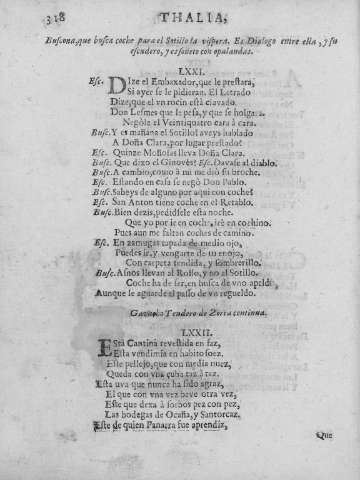 318 THALIA,
Buscona, que busca coche para el Sotillo la vispera. Es Dialogo entre ella, y su
escudero, y es soneto con opalandas.
LXXI.
Esc. DIze el Embaxador, que le prestara,
Si ayer se le pidieran. El Letrado
Dize, que el vn rocin està clavado.
Don Lesmes que le pesa, y que se holgara.
Negòle el Veintiquatro cara à cara.
Busc. Y es mañana el Sotillo! aveys hablado
A Doña Clara, por lugar prestado?
Esc. Quinze Mosiosas lleva Doña Clara.
Busc. Que dixo el Ginovès? Esc. Davase al diablo.
Busc. A cambio, como à mi me diò su broche.
Esc. Estando en casa se negò Don Pablo.
Busc. Sabeys de alguno por aqui con coche?
Esc. San Anton tiene coche en el Retablo.
Busc. Bien dezis, pedidsele esta noche.
Que yo por ir en coche, irè en cochino.
Pues aun me faltan coches de camino.
Esc. En zamugas tapada de medio ojo,
Puedes ir, y vengarte de tu enojo,
Con carpeta tendida, y sombrerillo.
Busc. Asnos llevan al Rollo, y no al Sotillo.
Coche ha de ser, en busca de vno
Aunque se aguarde al passo de vn regueldo.
Tendero de Zorra continua.
LXXII.
EStà Cantina revestida en faz,
Esta vendimia en habito soez,
Este pellejo, que con media nuez,
Queda con vna cuba taz à taz.
Esta uva que nunca ha sido agraz,
El que con vna vez beve otra vez,
Este que dexa à sorbos pez con pez,
Las bodegas de Ocaña, y Santorcaz.
Este de quien Panarra fue aprendiz,
Que